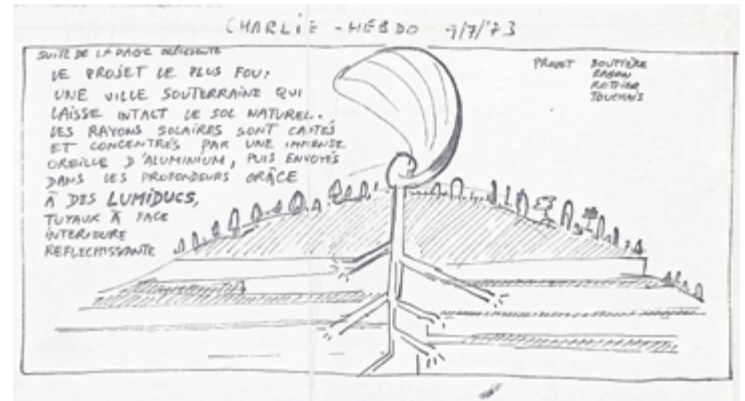 CHARLIE - HEBDO 9/7/'73
SUITE DE LA PAGE PRÉCÉDENTE
LE PROJET LE PLUS FOU:
UNE VILLE SOUTERRAINE QUI
LAISSE INTACT LE SOL NATUREL.
LES RAYONS SOLAIRES SONT CAPTÉS
ET CONCENTRÉS PAR UNE IMMENSE
OREILLE D'ALUMINIUM, PUIS ENVOYÉS
DANS LES PROFONDEURS GRÂCE
À DES LUMIDUCS,
TUYAUX À FACE
INTERIEURE
REFLECHISSANTE
PROJET
RAGON